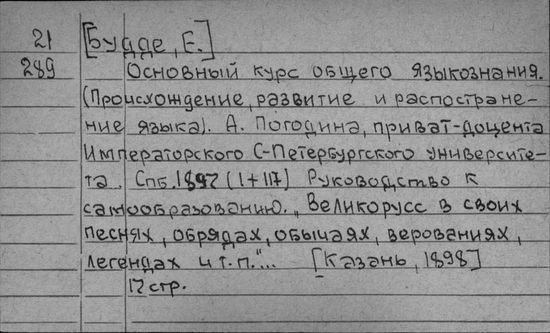 21 [Будде, Е.]
289 Основный курс общего языкознания.
(Происхождение, развитие и распостране-
ние языка). А. Погодина, приват-доцента
Императорского С-Петербургского университе-
та. Спб. 1897 (1+117) Руководство к
самообразованию. „Великорусс в своих
песнях, обрядах, обычаях, верованиях,
легендах и т.п."... [Казань, 1898]
12 стр.